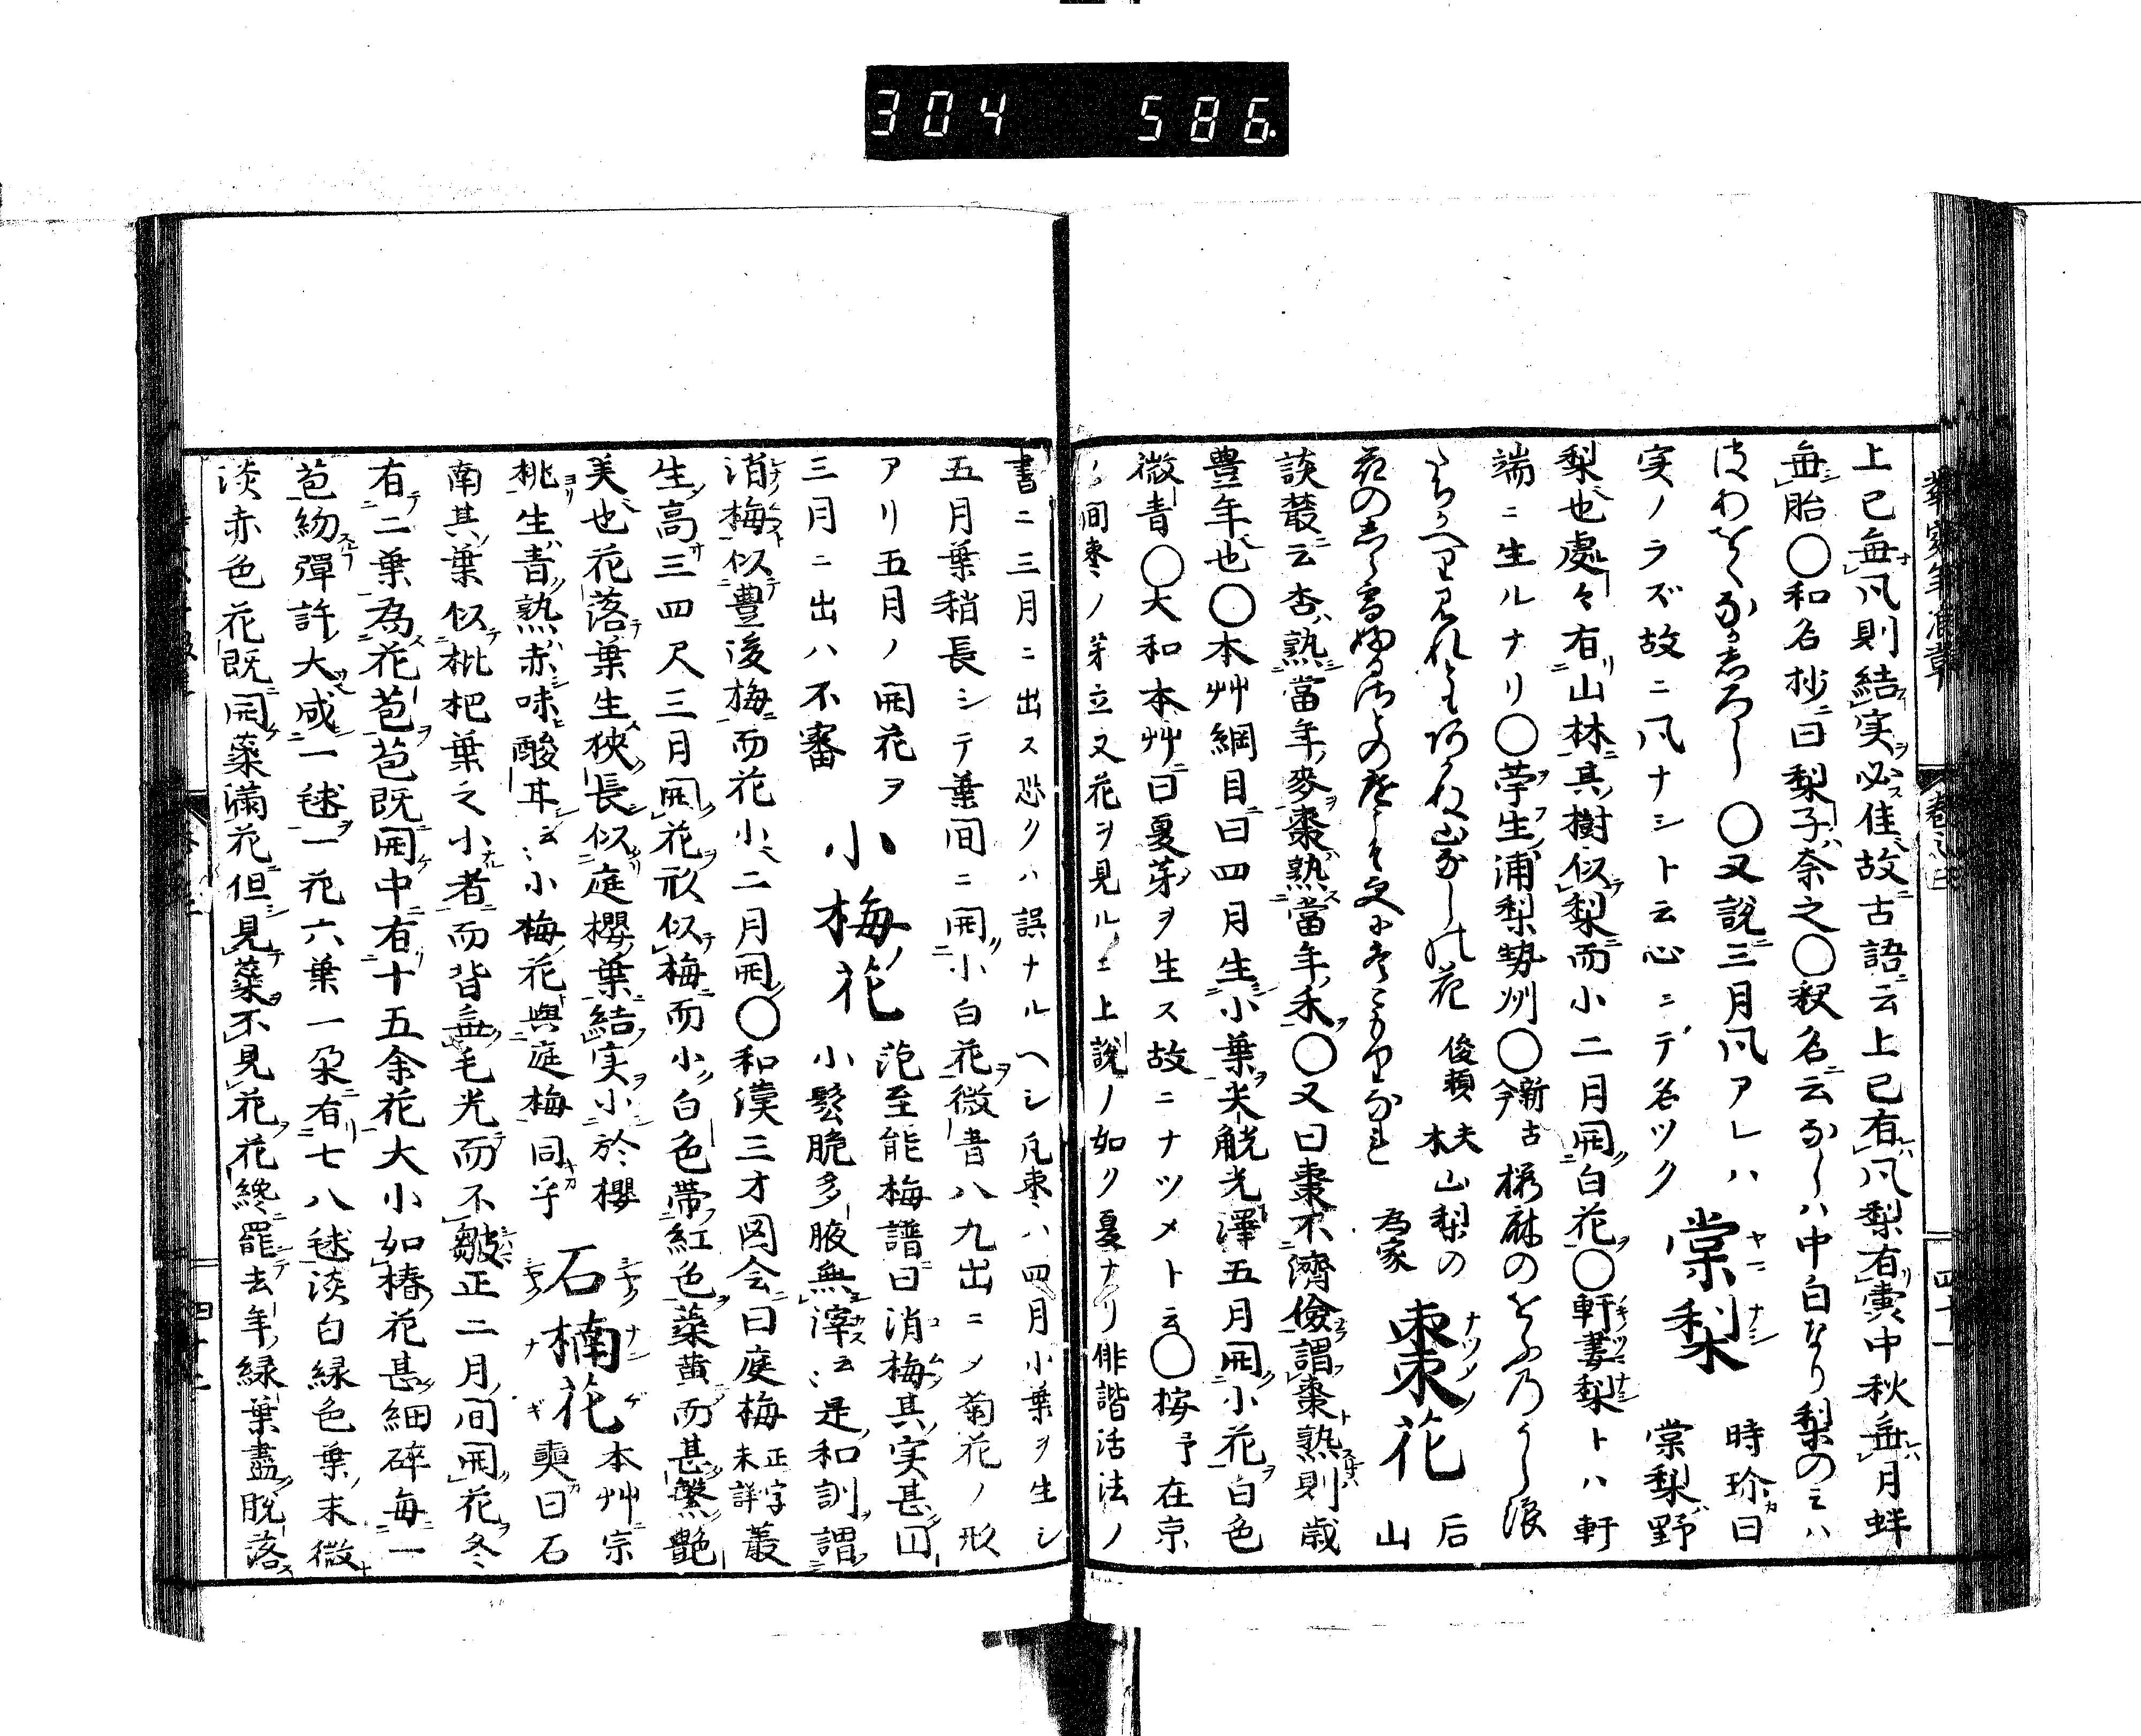 304 586.
上巳無風則結実必佳故古語云上巳有風梨有蠹中秋無月蚌
無胎〇和名抄曰梨子奈之〇釈名云なしハ中白なり梨のミハ
〇又説三月風アレハ
実ノラズ故ニ風ナシト云心ニテ名ツク
棠梨 ヤマナシ
時珍曰
棠梨野
梨也處々有山林其樹似梨而小二月開白花〇軒妻梨トハ軒
端ニ生ルナリ〇苧生浦梨勢州〇新古今 桜麻のをふのうら浪
たちかへり見れともあかぬ山なしの花 俊頼 夫木 山梨の
花のしら
為家
棗花 ナツメノ
后山
談叢云杏熟當年麥棗熟當年禾〇又曰棗不濟儉謂棗熟則歳
豊年也〇本艸綱目曰四月生小葉尖觥光澤五月開小花白色
微青〇大和本艸曰夏芽ヲ生ス故ニナツメト云〇按予在京
ノ間棗ノ芽立又花ヲ見ルニ上説ノ如ク夏ナリ俳諧活法ノ
書ニ三月ニ出ス恐クハ誤ナルヘシ凡棗ハ四月小葉ヲ生シ
五月葉稍長シテ葉間ニ開小白花微青八九出ニメ菊花ノ形
アリ五月ノ開花ヲ
三月ニ出ハ不審
小梅花
范至能梅譜曰消梅其実甚
小鬆脆多腋無滓云云是和訓謂
消梅似豊後梅而花小二月開〇和漢三才図会曰庭梅 正字未詳 叢
生高三四尺三月開花形似梅而小白色帯紅色蘂黄而甚繁艶
美也花落葉生狹長似庭櫻葉結実小於櫻
桃生青熟赤味酸耳云云小梅花與庭梅同乎
石楠花 シヤクナンゲ シヤクナギ
本艸宗
奭曰石
南其葉似枇杷葉之小者而背無毛光而不皺正二月間開花冬
有二葉為花苞苞既開中有十五余花大小如椿花甚細碎毎一
苞約彈許大成一毬一花六葉一朶有七八毬淡白緑色葉末微
淡赤色花既開蘂滿花但見蘂不見花花纔罷去年緑葉盡脱落